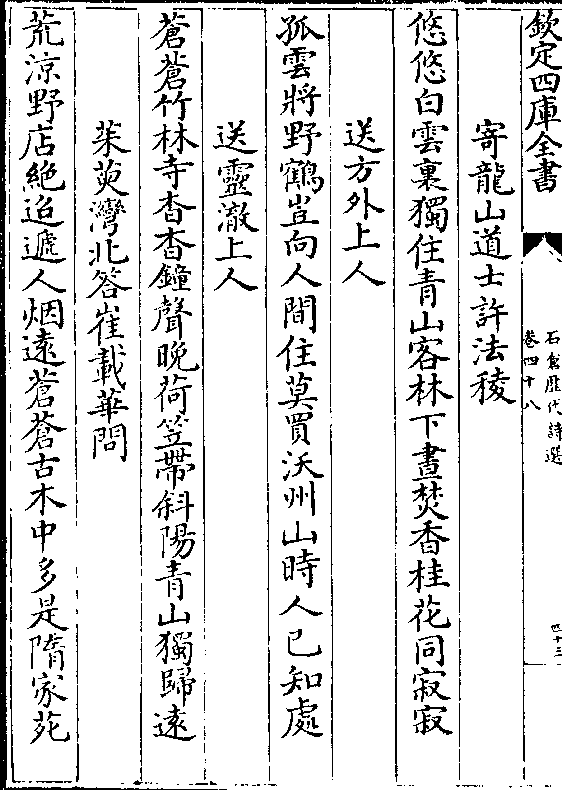 欽定四庫全書
石倉歷代詩選
卷四十八
四十三
寄龍山道士許法稜
悠悠白雲裏獨住青山客林下晝焚香桂花同寂寂
送方外上人
孤雲將野鶴豈向人間住莫買沃州山時人已知處
送靈澈上人
蒼蒼竹林寺杳杳鐘聲晚荷笠帶斜陽青山獨歸遠
茱萸灣北答崔載華問
荒涼野店絶迢遞人烟遠蒼蒼古木中多是隋家苑